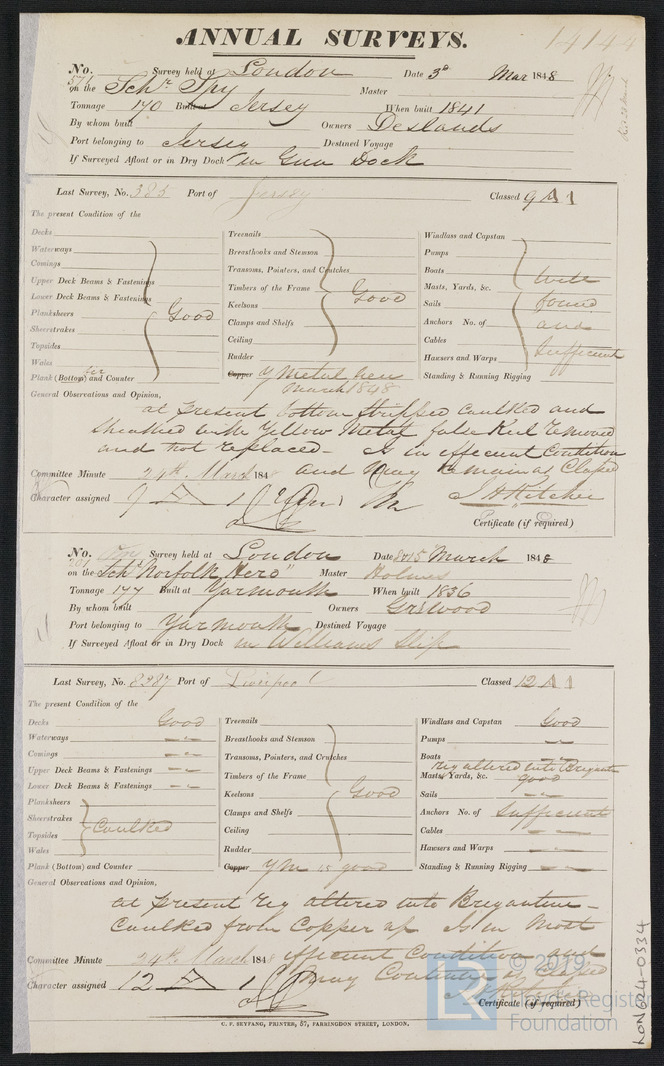 ANNUAL SURVEYS.
14144
No. 576 Survey held at London Date 3d Mar 1848
on the Schr Spy Master
Tonnage 170 Built at Jersey When built 1841
By whom built Owners Deslands
Port belonging to Jersey Destined Voyage
If Surveyed Afloat or in Dry Dock in Gun Dock
Last Survey, No. 385 Port of Jersey Classed 9 A 1
The present Condition of the
Decks
Waterways
Comings
Upper Deck Beams & Fastenings
Lower Deck Beams & Fastenings
Planksheers Good
Sheerstrakes
Topsides
Wales
Plank (Bottom) and Counter
Treenails
Breasthooks and Stemson
Transoms, Pointers, and Crutches
Timbers of the Frame Good
Keelsons
Clamps and Shelfs
Ceiling
Rudder
Copper Y Metal new
March 1848
Windlass and Capstan
Pumps
Boats
Masts, Yards, &c. Well
Sails found
Anchors No. of and
Cables
Hawsers and Warps Sufficient
Standing & Running Rigging
General Observations and Opinion,
at present bottom stripped caulked and
sheathed with Yellow Metal false Keel removed
and not replaced - Is in efficient Condition
Committee Minute 24th March 1848 and May remain as Classed
Character assigned 9 A 1 J H Ritchie
Certificate (if required)
No. Survey held at London Date 8 & 15 March 1848
on the Schr "Norfolk Hero" Master Holmes
Tonnage 177 Built at Yarmouth When built 1836
By whom built Owners Griswood
Port belonging to Yarmouth Destined Voyage
If Surveyed Afloat or in Dry Dock in Williams Slip
Last Survey, No. 8387 Port of Liverpool Classed 12 A 1
The present Condition of the
Decks Good
Waterways - -
Comings - -
Upper Deck Beams & Fastenings - -
Lower Deck Beams & Fastenings - -
Planksheers
Sheerstrakes
Topsides Caulked
Wales
Plank (Bottom) and Counter
Treenails
Breasthooks and Stemson
Transoms, Pointers, and Crutches
Timbers of the Frame
Keelsons Good
Clamps and Shelfs
Ceiling
Rudder
Copper YM is good
Windlass and Capstan Good
Pumps - -
Boats - -
rig altered into Brigantine
Masts, Yards, &c. good
Sails - -
Anchors No. of Sufficient
Cables - -
Hawsers and Warps - -
Standing & Running Rigging - -
General Observations and Opinion,
at present rig altered into Bregantine -
Caulked from Copper up Is in Most
Committee Minute 24th March 1848 efficient Condition and
may Continue as Classed
Character assigned 12 A 1
Certificate (if required)
C. F. SEYFANG, PRINTER, 57, FARRINGDON STREET, LONDON.
© 2019
LR
Lloyd's Register
Foundation
LON624-0334